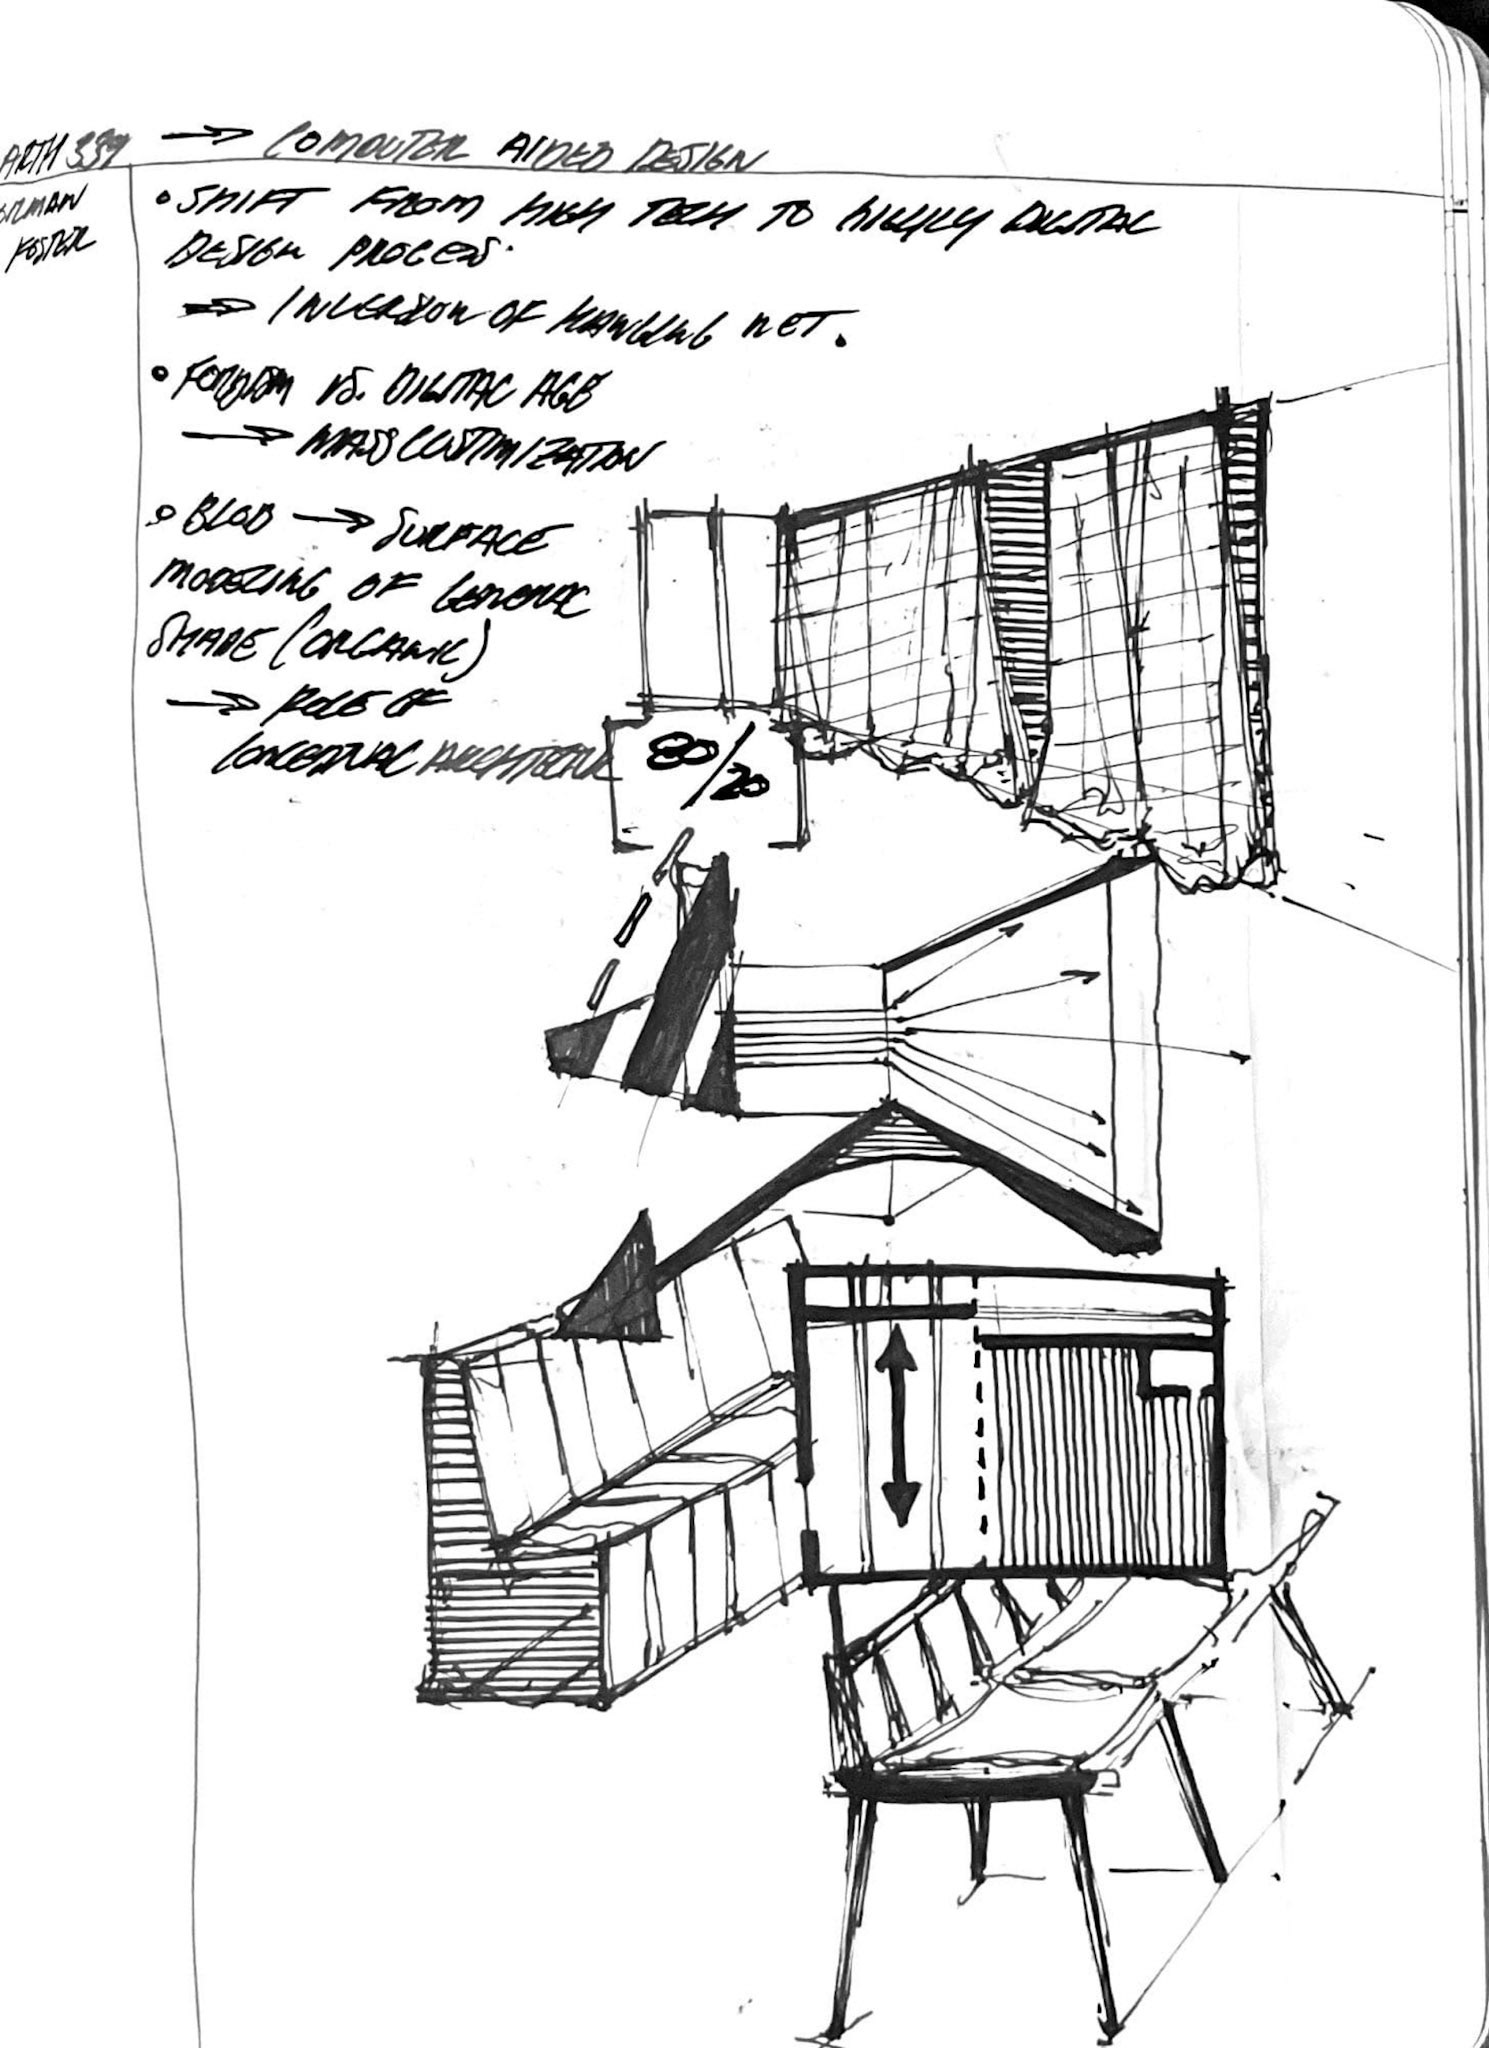 ARTH 339 → COMPUTER AIDED DESIGN
NORMAN
FOSTER
• SHIFT FROM HIGH TECH TO HIGHLY DIGITAL
DESIGN PROCESS.
→ INVERSION OF HANGING NET.
• FORDISM VS. DIGITAL AGE
→ MASS CUSTIMIZATION
• BLOB → SURFACE
MODELING OF GENERAL
SHAPE (ORGANIC)
→ ROLE OF
ARCHITECTURE
80/20